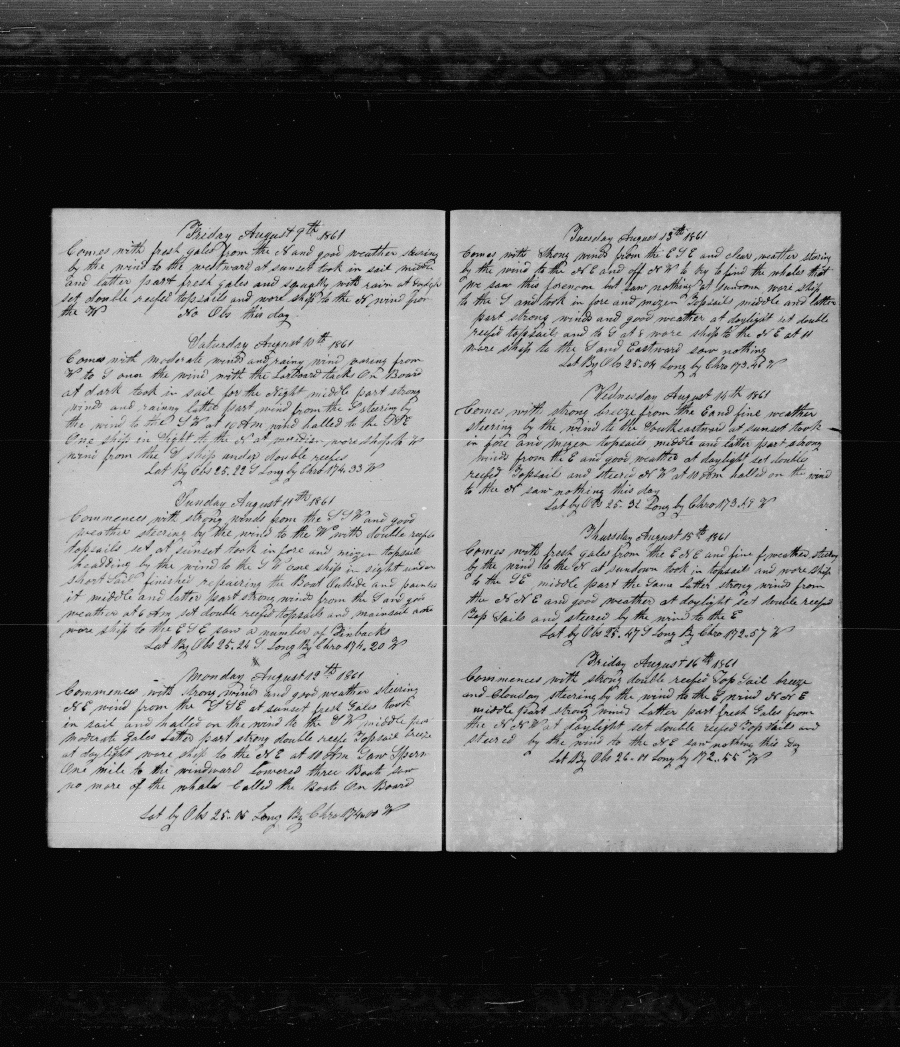 Friday August 9th 1861
Comes with fresh gales from the N and good weather stearing
by the wind to the westward at sunset took in sail middle
and latter part fresh gales and squally with rain at
set double reefed topsails and wore ship to the N wind from
the W No Obs this day
Saturday August 10th 1861
Comes with moderate winds and rainy wind from
W to S over the wind with the Larboard tacks On Board
at dark took in sail for the Night middle part strong
winds and rainy latter part wind from the S steering by
the wind to the S W at 10 Am wind halled to the
One ship in Sight to the N at meridian wore ship to W
wind from the S ship under double reefs
Lat By Obs 25.22 S Long by Chro 174.33 W
Sunday August 11th 1861
Commences with strong winds from the S S W and good
weather steering by the wind to the W with double reefed
topsails set at sunset took in fore and mizen topsail
headding by the wind to the S W one ship in sight under
short Sail finished repairing the Boat Outside and painted
it middle and latter part strong winds from the S and good
weather at 6 Am set double reefed topsails and mainsail
wore ship to the E S E saw a number of Finbacks
Lat By Obs 25.24 S Long By Chro 174.20 W
Monday August 12th 1861
Commences with strong winds and good weather steering
N E wind from the S S E at sunset fresh Gales took
in sail and halled on the wind to the S W middle part
moderate Gales Latter part strong double reefe Topsail breeze
at daylight wore ship to the N E at 10 Am Saw Sperm
One mile to the windward Lowered three Boats saw
no more of the whales Called the Boats On Board
Lat by Obs 25.05 Long By Chro 174.00 W
Tuesday August 13th 1861
Comes with Strong winds from the E S E and clear weather stering
by the wind to the N E and off N W to try to find the whales that
we saw this forenoon but saw nothing at sundown wore ship
to the S and took in fore and mizen Topsail middle and latter
part strong winds and good weather at daylight set double
reefed topsail and to S at 8 wore ship to the N E at 11
wore ship to the S and Eastward saw nothing
Lat By Obs 25.04 Long by Chro 173.48 W
Wednesday August 14th 1861
Comes with strong breeze from the E and fine weather
steering by the wind to the Southeastward at sunset took
in fore and mizen topsails middle and latter part strong
winds from the E and good weather at daylight set double
reefed Topsail and steered N W at 10 Am halled on the wind
to the N saw nothing this day
Lat by Obs 25.32 Long by Chro 173.19 W
Thursday August 15th 1861
Comes with fresh gales from the E N E and fine weather steering
by the wind to the N at sundown took in topsail and wore ship
to the S E middle part the Same Latter strong winds from
the N N E and good weather at daylight Set double reefed
Top Sails and steered by the wind to the E
Lat by Obs 25.47 S Long By Chro 172.57 W
Friday August 16th 1861
Commences with strong double reefed Top Sail breeze
and Clouday steering by the wind to the E wind N N E
middle part strong wind Latter part fresh Gales from
the N N W at daylight set double reefed Top Sails and
steered by the wind to the N E saw nothing this day
Lat By Obs 26.11 Long by 172.55 W